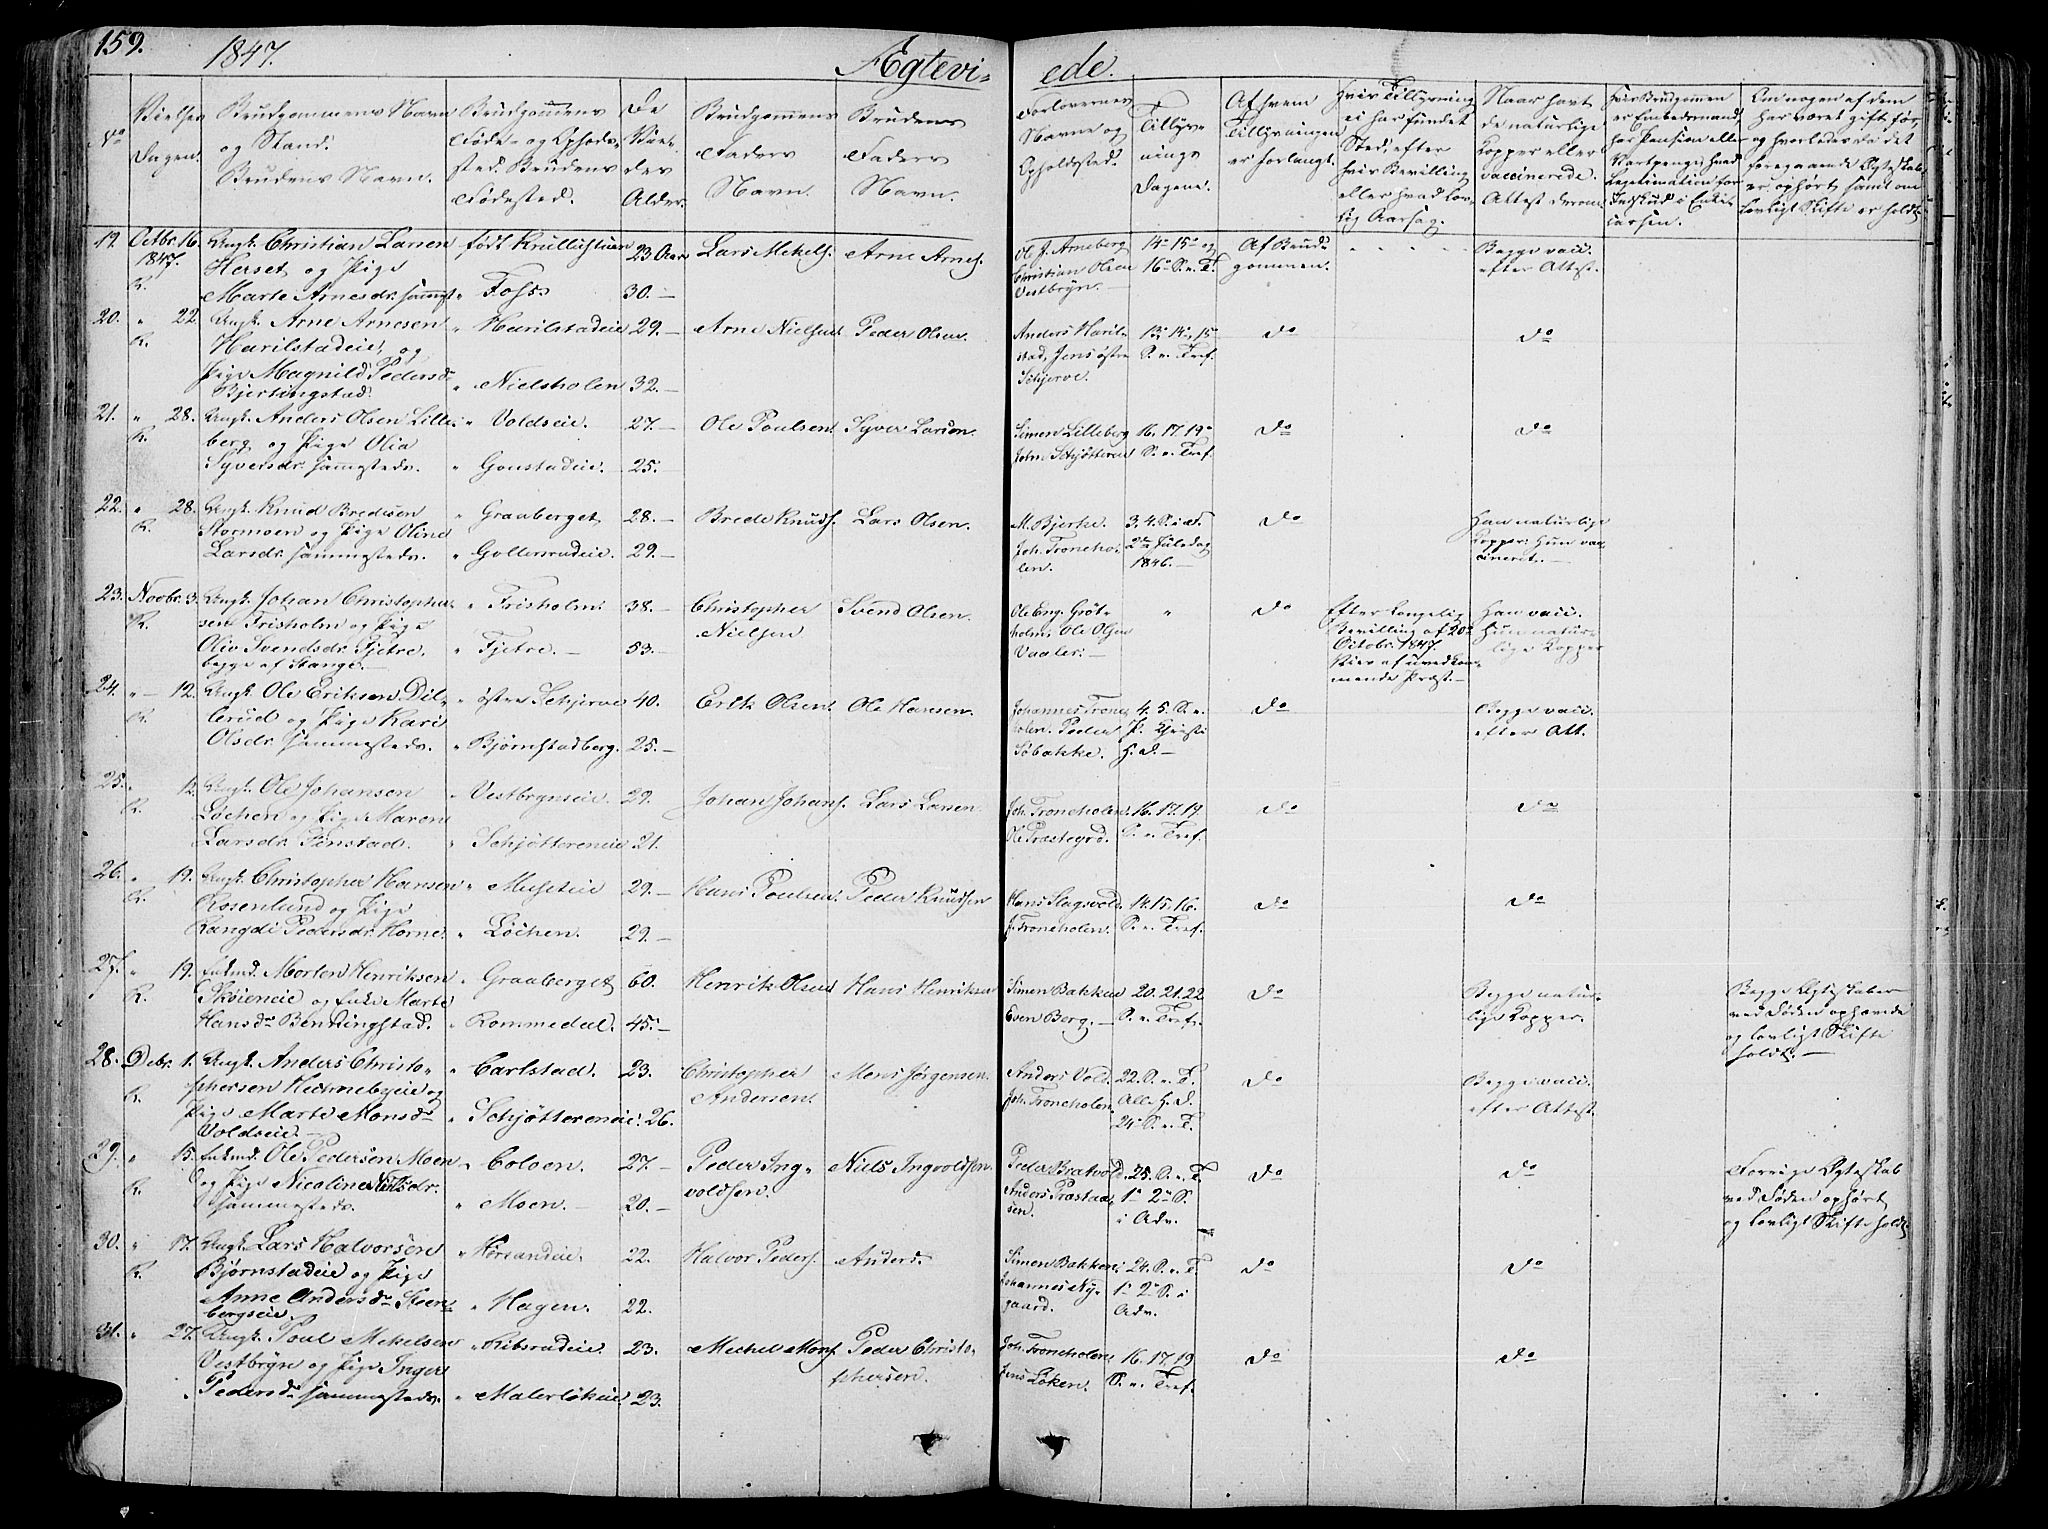 159.
1847.
Ægtevi-
ede.
No
Vielses
Dagen.
Brudgommens Navn
og Stand.
Brudens Navn.
Brudgommens
Føde- og Opholds-
sted. Brudens
Fødested.
De
Vie-
des
Alder.
Brudgommens
Faders
Navn.
Brudens
Faders
Navn.
Forlovernes
Navne og
Opholdssted.
Tillys-
nings
Dagene.
Af hvem
Tillysningen
er forlangt.
Hvis Tillysning
ei har fundet
Sted, efter
hvis Bevilling
eller hvad lov-
lig Aarsag.
Naar havt
de naturlige
Kopper eller
vaccinerede.
Attest derom.
Hvis Brudgommen
er Embedsmand,
har Pension eller
Vartpenge, hvad
Legitimation for
Indskud i Enke-
cassen.
Om nogen af dem
har været gift før,
og hvorledes da det
foregaaende Ægteskab
er ophørt samt om
lovligt Skifte er holdt.
19. Octbr. 16.
1847.
K.
Ungk. Christian Larsen
Herset og Pige
Marte Arnesdr. sammst.
født Krullistuen
" Foss
23 Aar
30.
Lars Mekels.
Arne Arnes.
Ol J. Arneberg
Christian Olsen
Vestbryn.
14 15 og
16 S. e. T.
Af Brud-
gommen.
Begge vacc.
efter Attest.
20. " 22.
K.
Ungk. Arne Arnesen
Harilstadeie, og
Pige Magnild Pedersdr
Bjertingstad.
" Harilstadeie
" Nielsholen
29.
32.
Arne Nielsen.
Peder Olsen.
Anders Haril-
stad, Jens østre
Schjerve.
13 14 15
S. e. Tref.
Do
Do
21. " 28.
K.
Ungk. Anders Olsen Lille-
berg og Pige Olia
Syversdr. sammesteds.
" Voldseie.
" Gonstadeie.
27.
25.
Ole Poulsen.
Syver Larsen.
Simen Lilleberg
John Schjøtteren
16. 17. 19
S. e. Tref.
Do
Do
22. " 28.
K.
Ungk. Knud Bredesen
Stormoen og Pige Oline
Larsdr. sammesteds.
" Graaberget
" Gollersrudeie.
28.
29.
Brede Knuds.
Lars Olsen.
M. Bjerke.
Joh. Troneho-
len.
3. 4. S. i Ad.
2den Juledag
1846.
Do
Han naturlige
Kopper. Hun vac-
cineret.
23. Novbr. 3.
K.
Ungk. Johan Christopher-
sen Frisholm og Pige
Oliv Svendsdr. Tjetre,
begge af Stange.
" Frisholm.
" Tjetre.
38.
53.
Christopher
Nielsen
Svend Olsen.
Ole Eng. Grøt-
holm, Ole Olsen
Vaaler.
"
Do
Efter kongelig
Bevilling af 20
Octobr. 1847.
Viet af uvedkom-
mende Præst.
Han vacc.
Hun natur-
lige Kopper
24. " 12.
K.
Ungk. Ole Eriksen Dil-
lerud og Pige Kari
Olsdr. sammesteds.
" østre Schjerve
" Bjørnstadberg.
40.
25.
Erik Olsen.
Ole Hansen.
Johannes Trone-
holen. Peder
Søbakke.
4. 5. S. e.
P. Christi
H. D.
Do
Begge vacc.
efter Att.
25. " 12.
K.
Ungk. Ole Johansen
Løchen og Pige Maren
Larsdr. Finstad.
" Vestbrynseie.
" Schjøttereneie
29.
21.
Johan Johans.
Lars Larsen.
Joh. Troneholen.
Ole Præstegrd.
16. 17. 19
S. e. Tref.
Do
Do
26. " 19.
K.
Ungk. Christopher Hansen
Rosenlund og Pige
Rangdi Pedersdr. Horne.
" Museteie
" Løchen.
29.
29.
Hans Poulsen.
Peder Knudsen
Hans Slagsvold.
J. Troneholen.
14. 15. 16.
S. e. Tref.
Do
Do
27. " 19.
K.
Enkmd. Morten Henriksen
Skøieneie og Enke Marte
Hansdr Benningstad.
" Graaberget
" Rommedal.
60.
45.
Henrik Olsen
Hans Henriksen
Simen Bakken
Even Berg.
20. 21. 22
S. e. Tref.
Do
Begge natur-
lige Kopper.
Begge Ægteskaber
ved Døden ophævede
og lovligt Skifte
holdt.
28. Debr. 1.
K.
Ungk. Anders Christo-
phersen Hiermebyeie og
Pige Marte Monsdr
Voldseie.
" Carlstad.
" Schjøttereneie.
23.
26.
Christopher
Andersen
Mons Jørgensen.
Anders Vold.
Joh. Troneholen
22. S. e. T.
Alle H. D.
24 S. e. T.
Do
Begge vacc.
efter Attest.
29. " 15.
K.
Enkmd. Ole Pedersen Moen
og Pige Nicoline Nielsdr.
sammesteds.
" Coloen.
" Moen.
27.
20.
Peder Ing-
voldsen.
Niels Ingvoldsen.
Peder Bratvold.
Anders Præstaa-
sen.
25. S. e. T.
1 2 S.
i Adv.
Do
Do
Forrige Ægteskab
ved Døden ophørt
og lovligt Skifte holdt
30. " 17.
K.
Ungk. Lars Halvorsen
Bjørnstadeie og Pige
Anne Andersdr Steen-
bergseie.
" Horsandeie.
" Hagen.
22.
22.
Halvor Peders.
Anders.
Simen Bakken.
Johannes Ny-
gaard.
24. S. e. T.
1 2 S. i
Adv.
Do
Do
31. " 27.
Ungk. Poul Mekelsen
Vestbryn og Pige Inger
Pedersdr sammesteds.
" Ribsrudeie.
" Malerløkeie
23.
23.
Mechel Mons.
Peder Christo-
phersen.
Joh. Troneholen.
Jens Løken.
16. 17. 19
S. e. Tref.
Do
Do